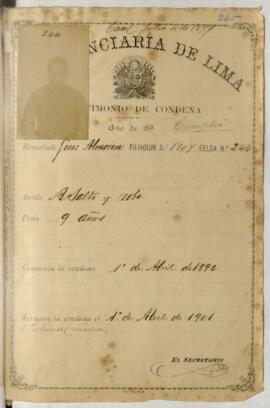 265
244
NCIARIA DE LIMA
TIMONIO DE CONDENA
Año de 189
Cumplió
Rematado Jesus FILIACION N.º 1909 CELDA N.º 244
Delito Asalto y robo
Pena 9 años
Comienza la condena 1º de Abril de 1892
Termina la condena el 1º de Abril de 1901
EL SECRETARIO